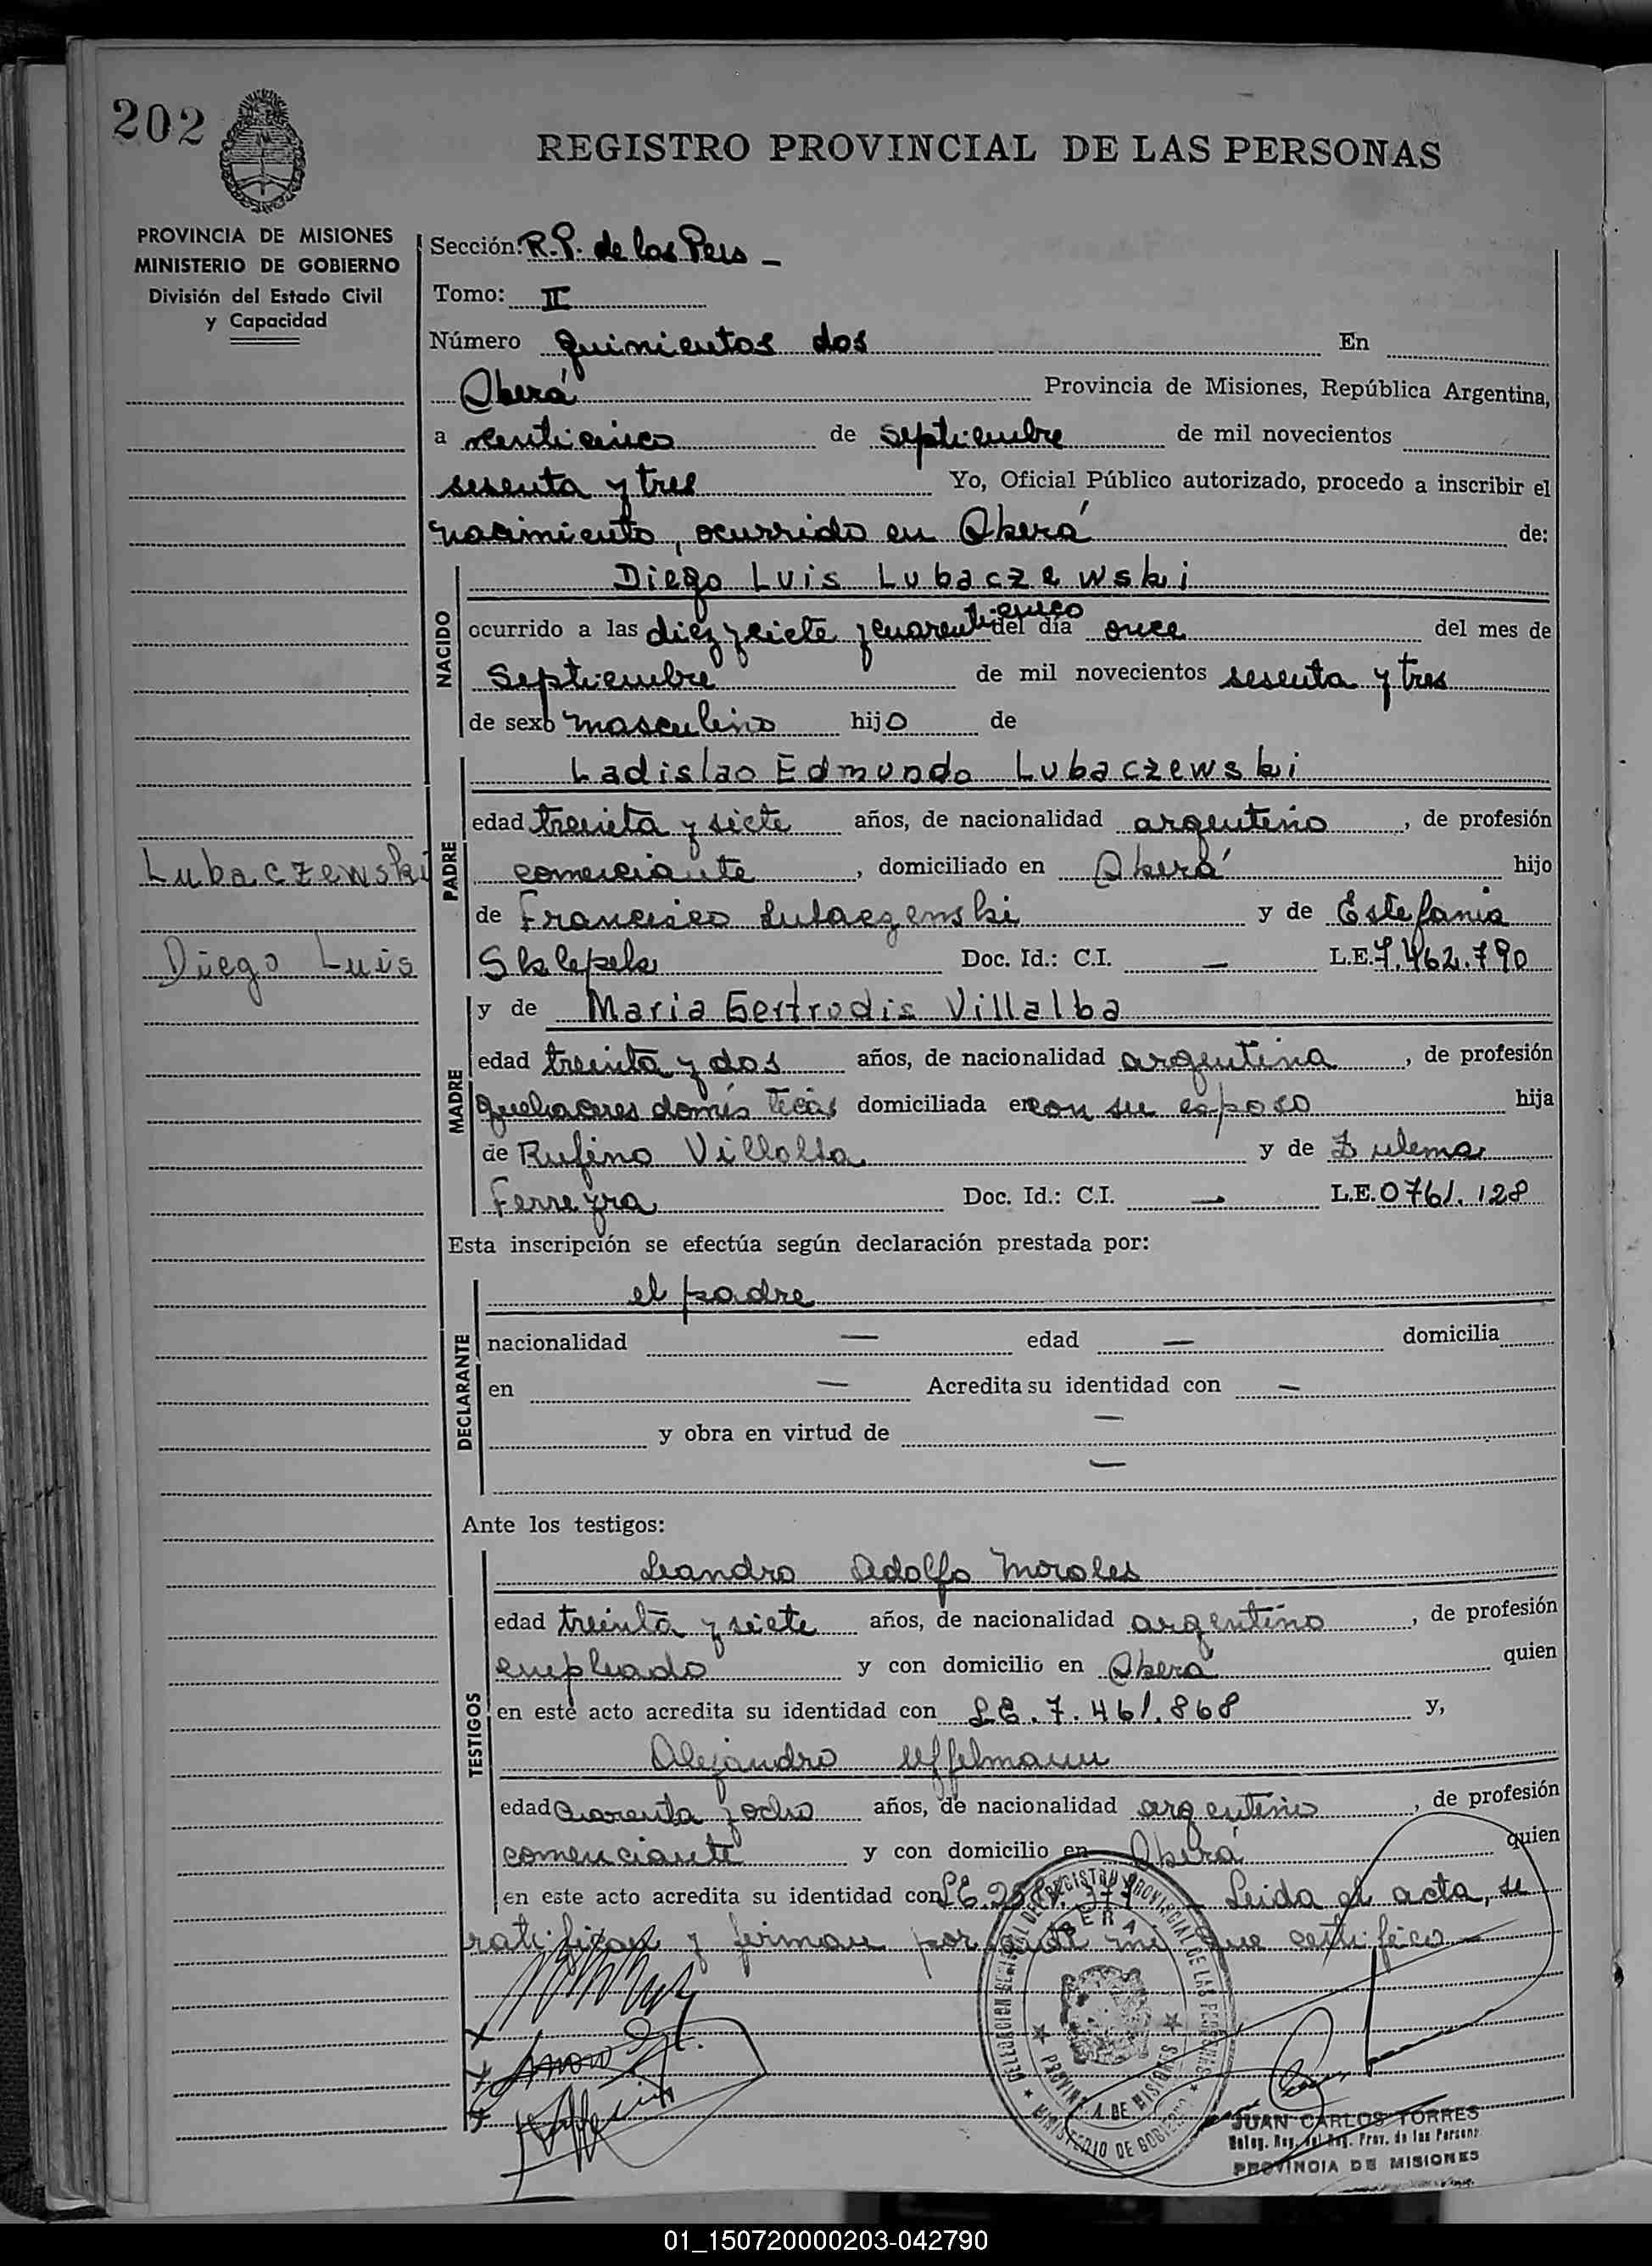 202
REGISTRO PROVINCIAL DE LAS PERSONAS
PROVINCIA DE MISIONES
MINISTERIO DE GOBIERNO
División del Estado Civil
y Capacidad
Sección: R.P. de las Pers -
Tomo: II
Número quinientos dos En
Oberá Provincia de Misiones, República Argentina,
a veinticinco de septiembre de mil novecientos
sesenta y tres Yo, Oficial Público autorizado, procedo a inscribir el
nacimiento, ocurrido en Oberá de:
NACIDO
Diego Luis Lubaczewski
ocurrido a las diez y siete y cuarenticinco del día once del mes de
Septiembre de mil novecientos sesenta y tres
de sexo masculino hijo de
PADRE
Ladislao Edmundo Lubaczewski
edad treinta y siete años, de nacionalidad argentino, de profesión
Lubaczewski
comerciante, domiciliado en Oberá hijo
de Francisco Lubaczewski y de Estefania
Diego Luis
Sklepek Doc. Id.: C.I. — L.E. 7.462.790
MADRE
y de Maria Gertrudis Villalba
edad treinta y dos años, de nacionalidad argentina, de profesión
quehaceres domésticas domiciliada en con su esposo hija
de Rufino Villalba y de Zulema
Ferreyra Doc. Id.: C.I. — L.E. 0761.128
Esta inscripción se efectúa según declaración prestada por:
DECLARANTE
el padre
nacionalidad — edad — domicilia
en — Acredita su identidad con —
y obra en virtud de —
—
Ante los testigos:
TESTIGOS
Leandro Adolfo Morales
edad treinta y siete años, de nacionalidad argentino, de profesión
empleado y con domicilio en Oberá quien
en este acto acredita su identidad con LE. 7.461.868 y,
Alejandro Uffelmann
edad cuarenta y ocho años, de nacionalidad argentino, de profesión
comerciante y con domicilio en Oberá quien
en este acto acredita su identidad con LE. Leida el acta, se
ratifican y firman por ante mi que certifico —
DELEGACION REGIONAL DEL REGISTRO PROVINCIAL DE LAS PERSONAS
OBERA
PROVINCIA DE MISIONES
MINISTERIO DE GOBIERNO
JUAN CARLOS TORRES
Deleg. Reg. del Reg. Prov. de las Persons
PROVINCIA DE MISIONES
01_150720000203-042790